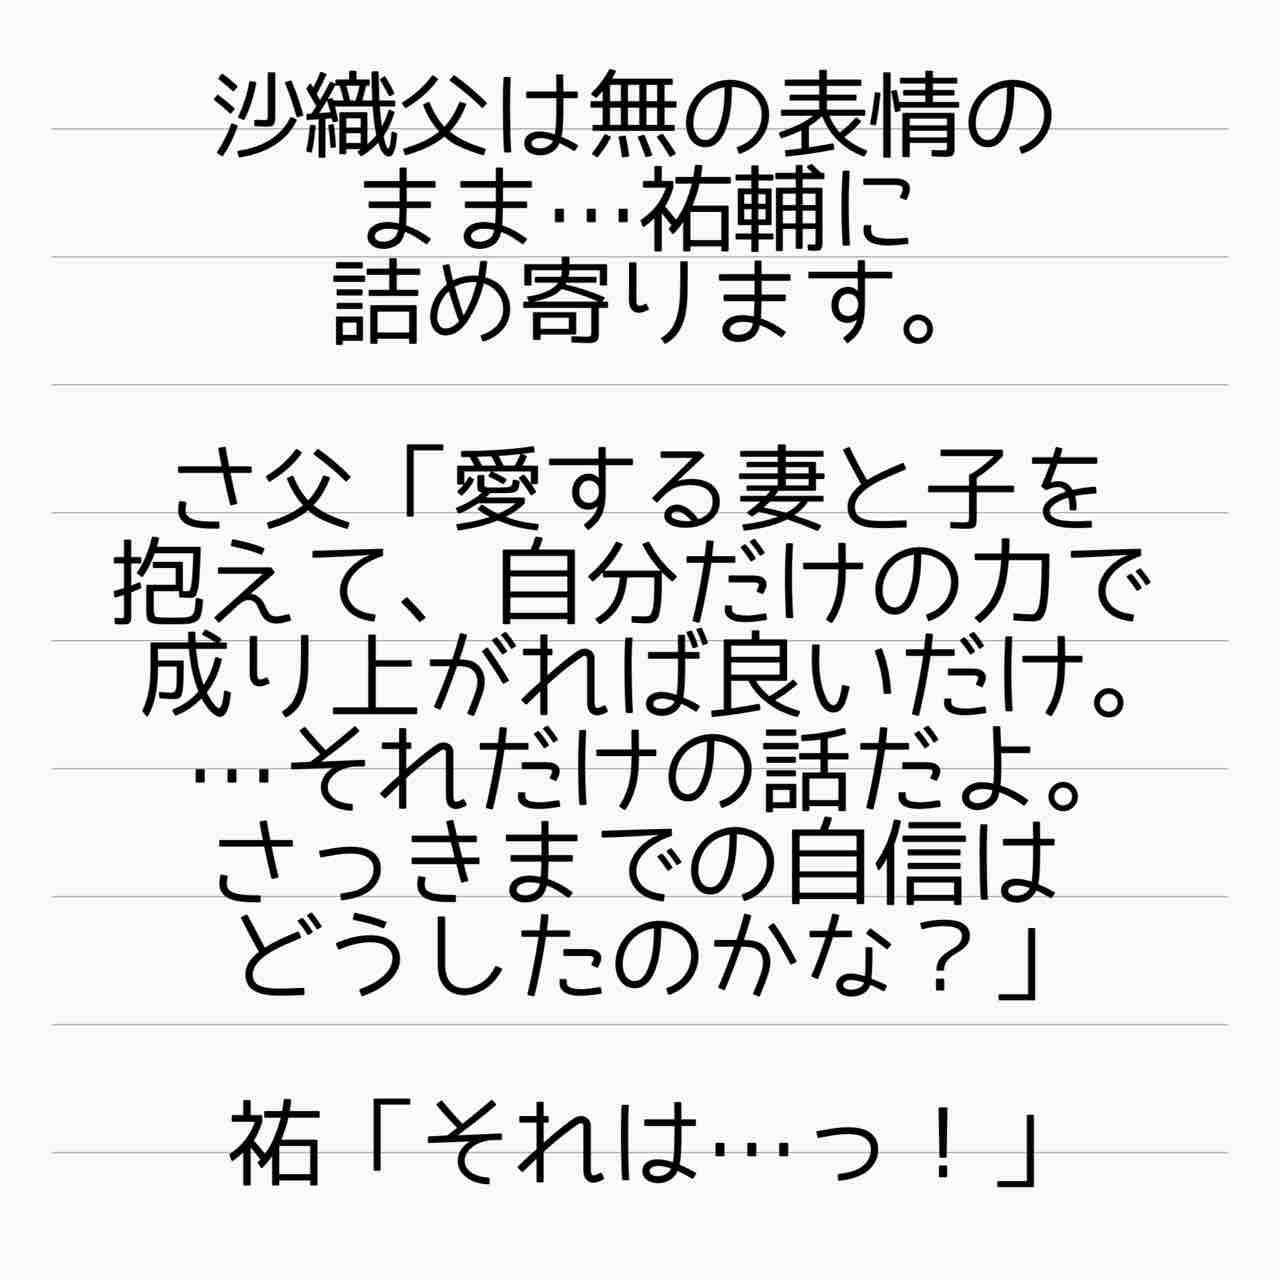 沙織父は無の表情の
まま…祐輔に
詰め寄ります。
さ父「愛する妻と子を
抱えて、自分だけの力で
成り上がれば良いだけ。
…それだけの話だよ。
さっきまでの自信は
どうしたのかな？」
祐「それは…っ！」